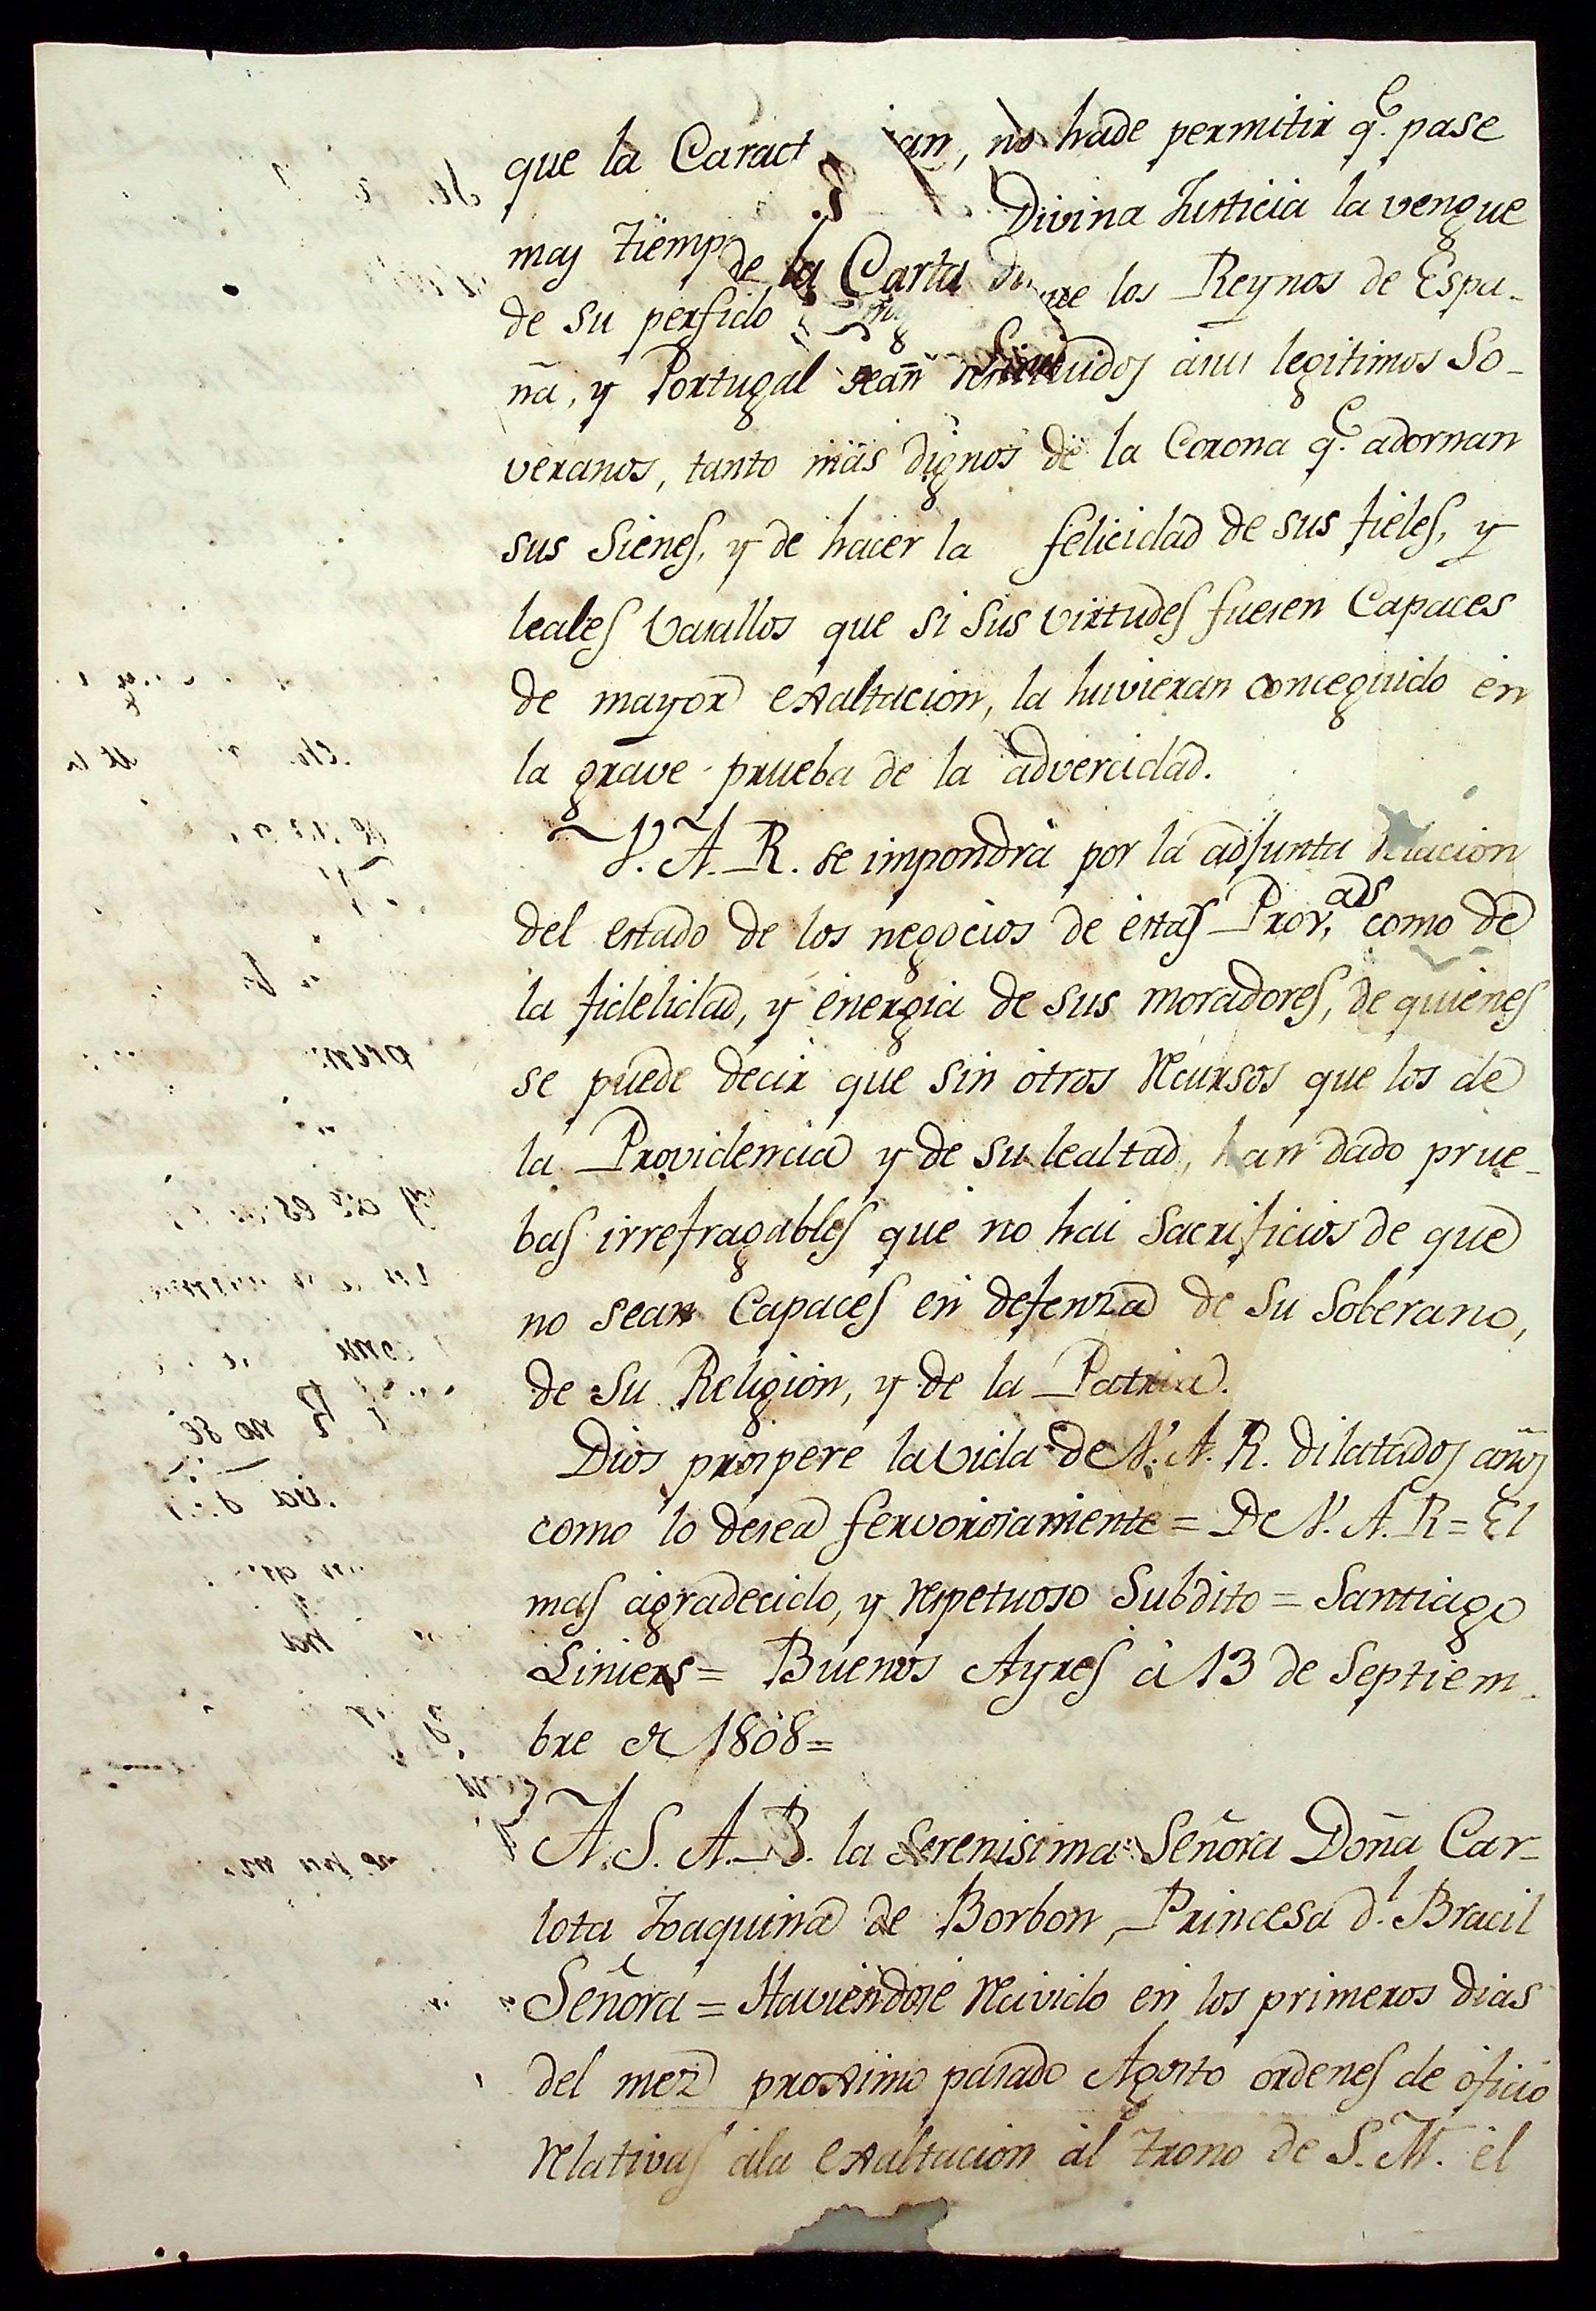 que la Caract ian, no hade permitir q.e pase
mas tiemp Divina Justicia la vengue
de su perfido de la Carta que los Reynos de Espa-
ña, y Portugal sean restituidos àsus legitimos So-
veranos, tanto màs dignos de la Corona q.e adornan
sus Sienes, y de hacer la felicidad de sus fieles, y
leales Vasallos que si sus virtudes fuesen Capaces
de mayor exaltacion, la huvieran conceguido en
la grave prueba de la advercidad.
V. A. R. se impondrà por la adjunta
del estado de los negocios de estas Prov.as como de
la fidelidad, y énergia de sus moradores, de quienes
se puede decir que sin otros recursos que los de
la Providencia y de su lealtad, han dado prue-
bas irrefragables que no hai Sacrificios de que
no sean Capaces en defenza de su Soberano,
de su Religion, y de la Patria.
Dios prospere la vida de V. A. R. dilatados años
como lo desea fervorosamente = De V. A. R = El
mas àgradecido, y respetuoso Subdito = Santiago
Liniers = Buenos Ayres à 13 de Septiem-
bre de 1808 =
A. S. A. R. la Serenisima Señora Doña Car-
lota Joaquina de Borbon, Princesa d.l Bracil
Señora = Haviendose recivido en los primeros dias
del mez proximo pasado Agosto ordenes de oficio
relativas àla exaltacion al trono de S. M. el